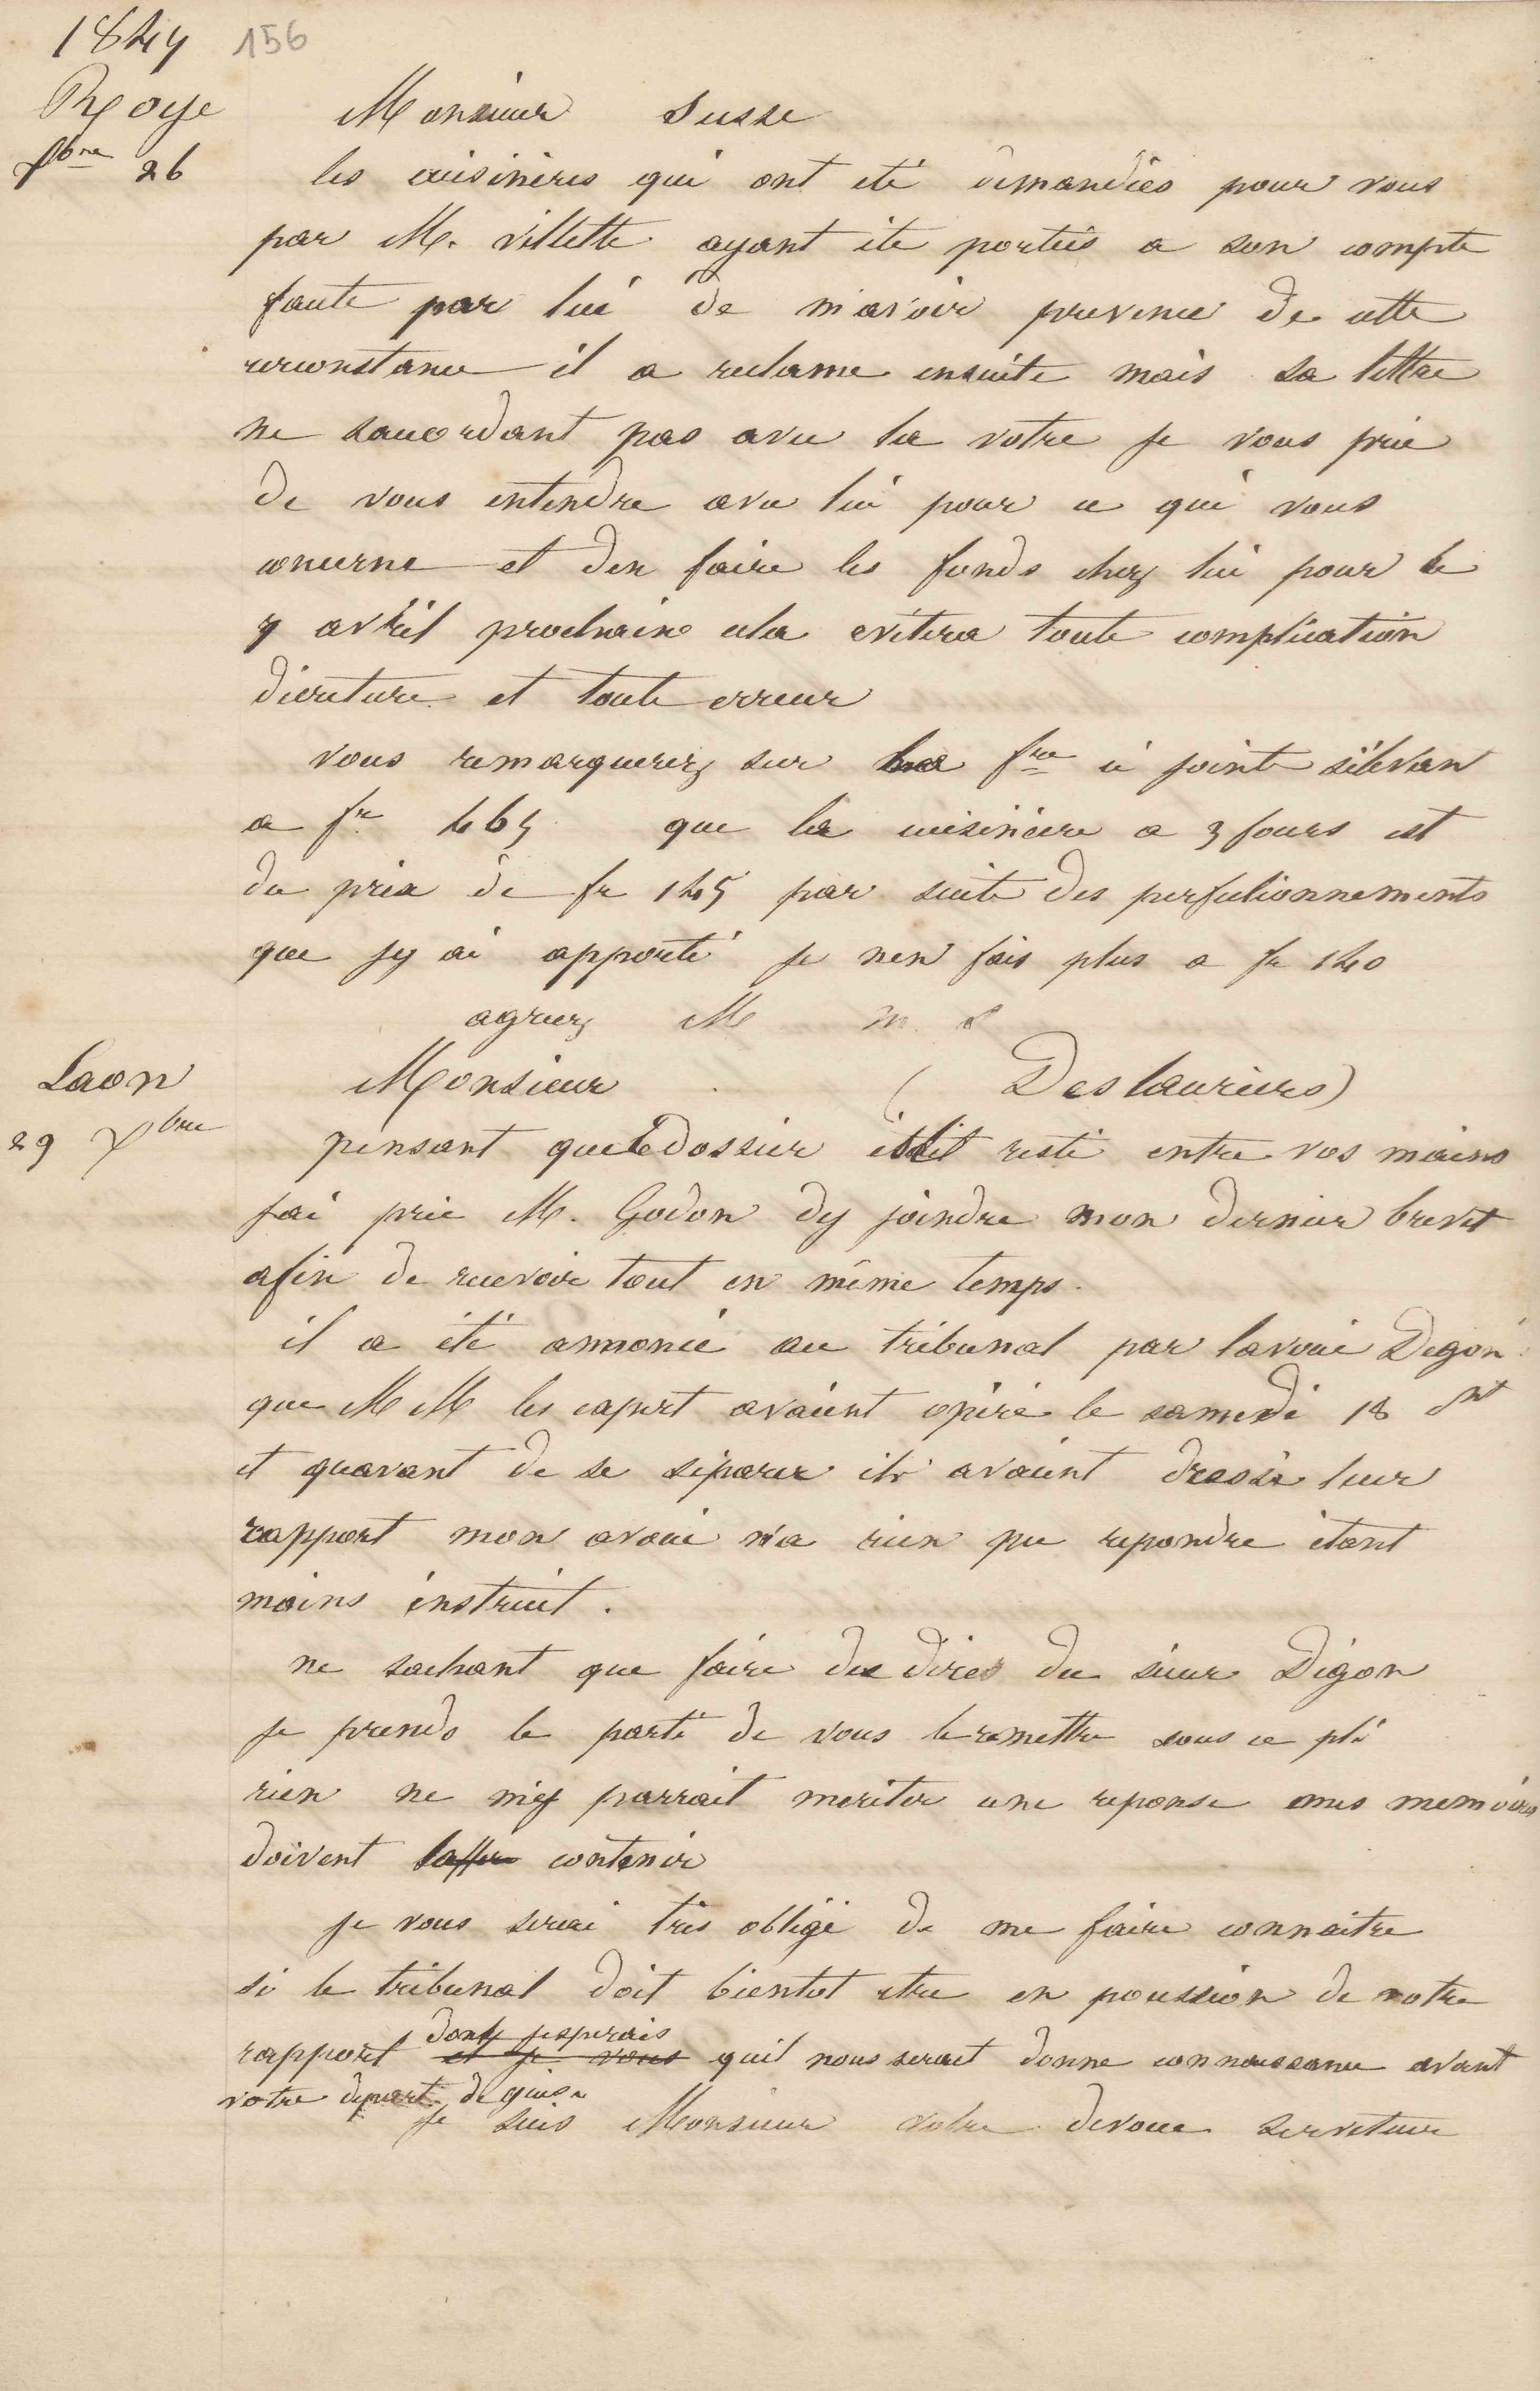 1847 156
Roye
Xbre 26
Monsieur Susse
les cuisinieres qui ont eté demandées pour vous
par M. villette ayant été portées a son compte
faute par lui de m'avoir prevenu de cette
circonstance il a reclame ensuite mais sa lettre
ne saccordant pas avec la votre je vous prie
de vous entendre avec lui pour ce qui vous
concerne et den faire les fonds chez lui pour le
7 avril prochain cela evitera toute complication
décriture et toute erreur
vous remarquerez sur la fre ci jointe s'élevan
a fr 465 que la cuisiniere a 3 fours est
du prix de fr 145 par suite des perfectionnements
que jy ai apporté je nen fais plus a fr 140
agreez M m. s
Laon
29 Xbre
Monsieur (Deslauriers)
pensant que le dossier était resté entre vos mains
jai prie M. Godon dy joindre mon dernier brevet
afin de recevoir tout en même temps.
il a été annoncé au tribunal par lavoué Degon
que MM les expert avaient opéré le samedi 18 ct
et quavant de se séparer ils avaient dressé leur
rapport mon avoué n'a rien pu repondre étant
moins instruit.
ne sachant que faire des dires du sieur Digon
je prends le parti de vous le remettre sous ce pli
rien ne m'y parrait meriter une reponse mes memoires
doivent laffer contenir
je vous serai très obligé de me faire connaitre
si le tribunal doit bientot etre en poussion de votre
rapport et je vous dont jesperais quil nous serait donne connaissance avant
votre depart de guise
je suis Monsieur votre devoue serviteur